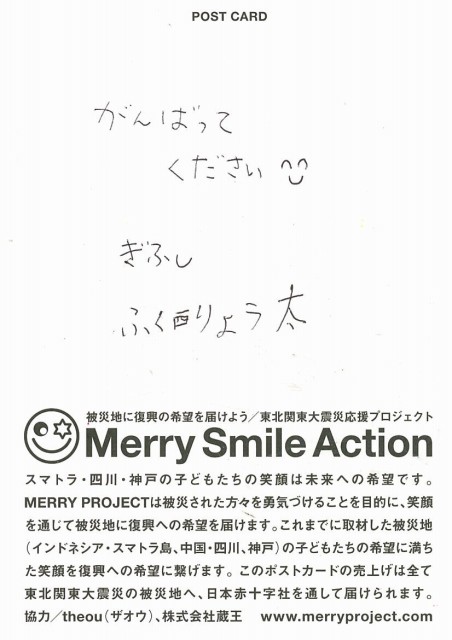 POST CARD
がんばって
ください
ぎふし
ふく酉りょう太
被災地に復興の希望を届けよう／東北関東大震災応援プロジェクト
Merry Smile Action
スマトラ・四川・神戸の子どもたちの笑顔は未来への希望です。
MERRY PROJECTは被災された方々を勇気づけることを目的に、笑顔
を通じて被災地に復興への希望を届けます。これまでに取材した被災地
（インドネシア・スマトラ島、中国・四川、神戸）の子どもたちの希望に満ち
た笑顔を復興への希望に繋げます。このポストカードの売上げは全て
東北関東大震災の被災地へ、日本赤十字社を通して届けられます。
協力／theou（ザオウ）、株式会社蔵王　www.merryproject.com